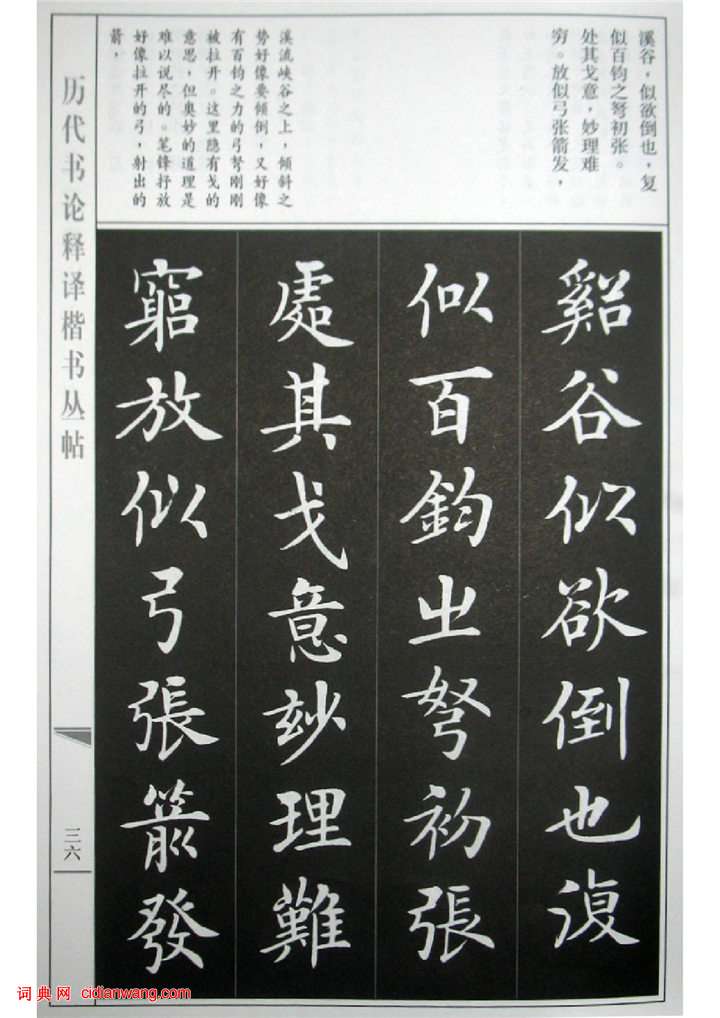 溪谷，似欲倒也，复
似百钧之弩初张。
处其戈意，妙理难
穷。放似弓张箭发，
溪流峡谷之上，倾斜之
势好像要倾倒，又好像
有百钧之力的弓弩刚刚
被拉开。这里隐有戈的
意思，但奥妙的道理是
难以说尽的。笔锋抒放
好像拉开的弓，射出的
箭，
谿谷似欲倒也復
似百鈞之弩初張
處其戈意玅理難
窮放似弓張箭發
历代书论释译楷书丛帖
三六
词典网 cidianwang.com